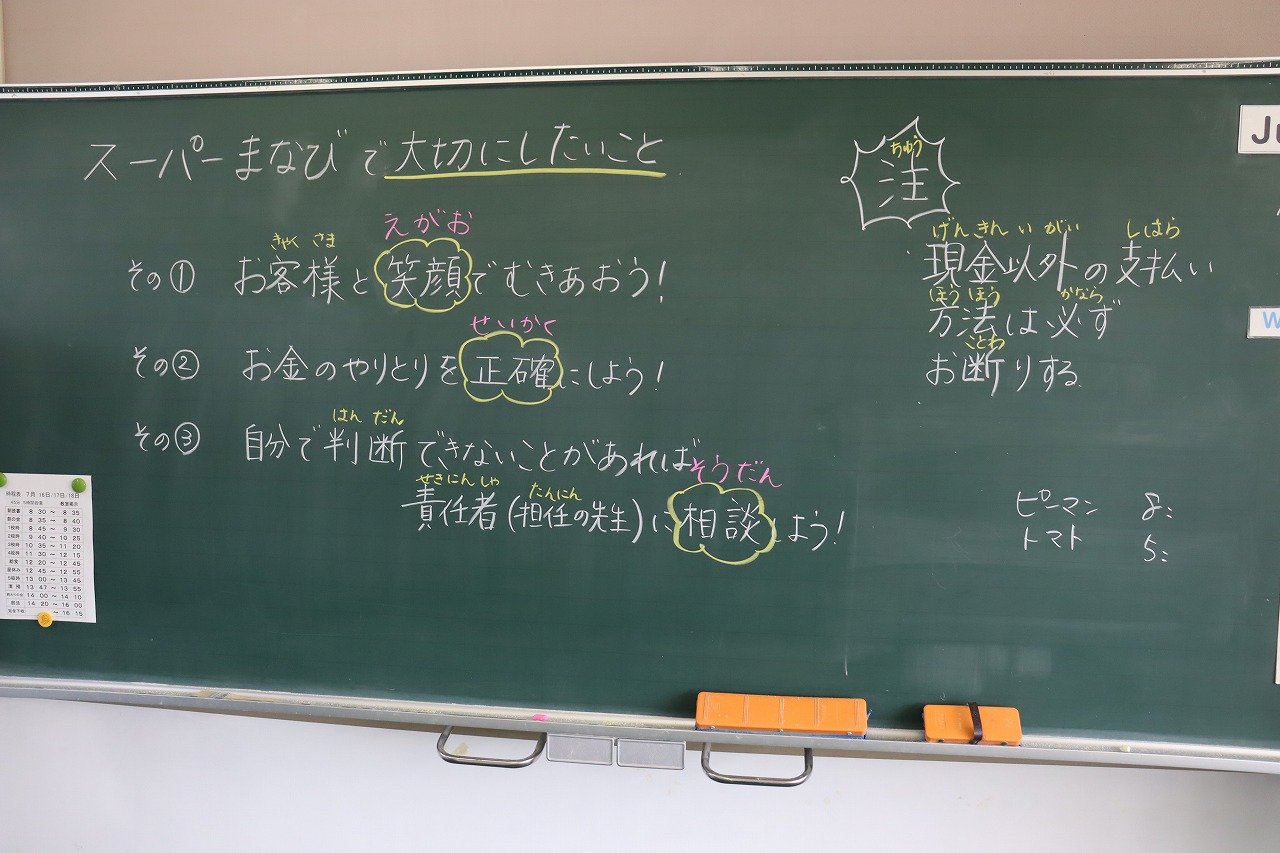 スーパーまなびで大切にしたいこと
えがお
きゃく さま
その① お客様と笑顔でむきあおう!
せいかく
その② お金のやりとりを正確にしよう!
はん だん
その③ 自分で判断できないことがあれば
そうだん
せきにんしゃ たんにん
責任者(担任の先生)に相談しよう!
ちゅう
注
げんきん い がい しはら
現金以外の支払い
ほうほう かなら
方法は必ず
ことわ
お断りする
ピーマン 8:
トマト 5:
時程表 7月 16日/17日/18日
8 30 ~ 8 35
8 35 ~ 8 40
1校時 8 45 ~ 9 30
2校時 9 40 ~ 10 25
3校時 10 35 ~ 11 20
4校時 11 30 ~ 12 15
給食 12 20 ~ 12 45
昼休み 12 45 ~ 12 55
5校時 13 00 ~ 13 45
清掃 13 47 ~ 13 55
14 00 ~ 14 10
部活 14 20 ~ 16 00
完全下校 ~ 16 15
W